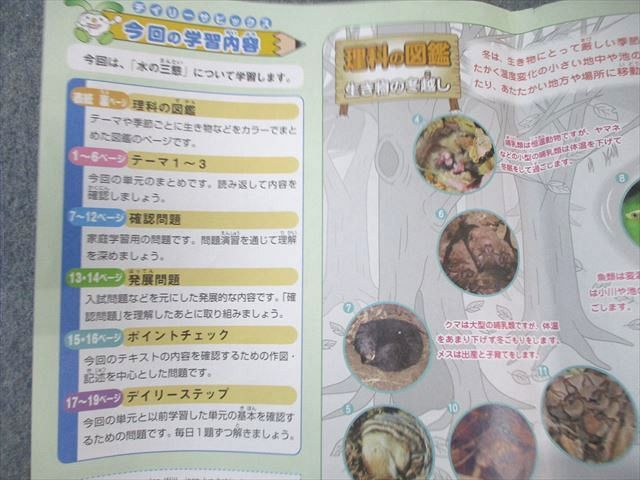 デイリーサピックス
今回の学習内容
今回は、「水の三態」について学習します。
表紙 裏ページ 理科の図鑑
テーマや季節ごとに生き物などをカラーでまと
めた図鑑のページです。
1〜6ページ テーマ1〜3
今回の単元のまとめです。読み返して内容を
確認しましょう。
7〜12ページ 確認問題
家庭学習用の問題です。問題演習を通じて理解
を深めましょう。
13・14ページ 発展問題
入試問題などを元にした発展的な内容です。「確
認問題」を理解したあとに取り組みましょう。
15・16ページ ポイントチェック
今回のテキストの内容を確認するための作図・
記述を中心とした問題です。
17〜19ページ デイリーステップ
今回の単元と以前学習した単元の基本を確認す
るための問題です。毎日1題ずつ解きましょう。
理科の図鑑
生き物の冬越し
冬は、生き物にとって厳しい季節
たかく温度変化の小さい地中や池の
たり、あたたかい地方や場所に移動
4
哺乳類は恒温動物ですが、ヤマネ
などの小型の哺乳類は体温を下げて
冬眠をして過ごします。
6
8
魚類は変温
は小川や池の
ごします。
7
クマは大型の哺乳類ですが、体温
をあまり下げず冬ごもりをします。
メスは出産と子育てをします。
5
10
11